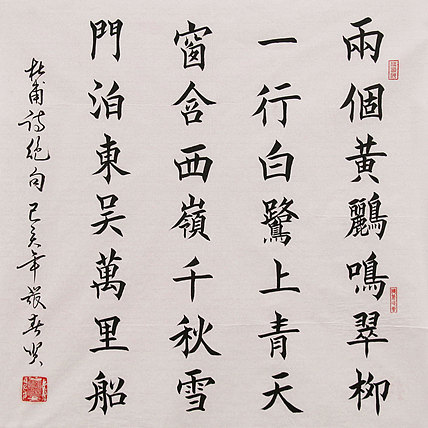 兩個黃鸝鳴翠柳
一行白鷺上青天
窗含西嶺千秋雪
門泊東吴萬里船
杜甫诗絶句己亥年敬春峴